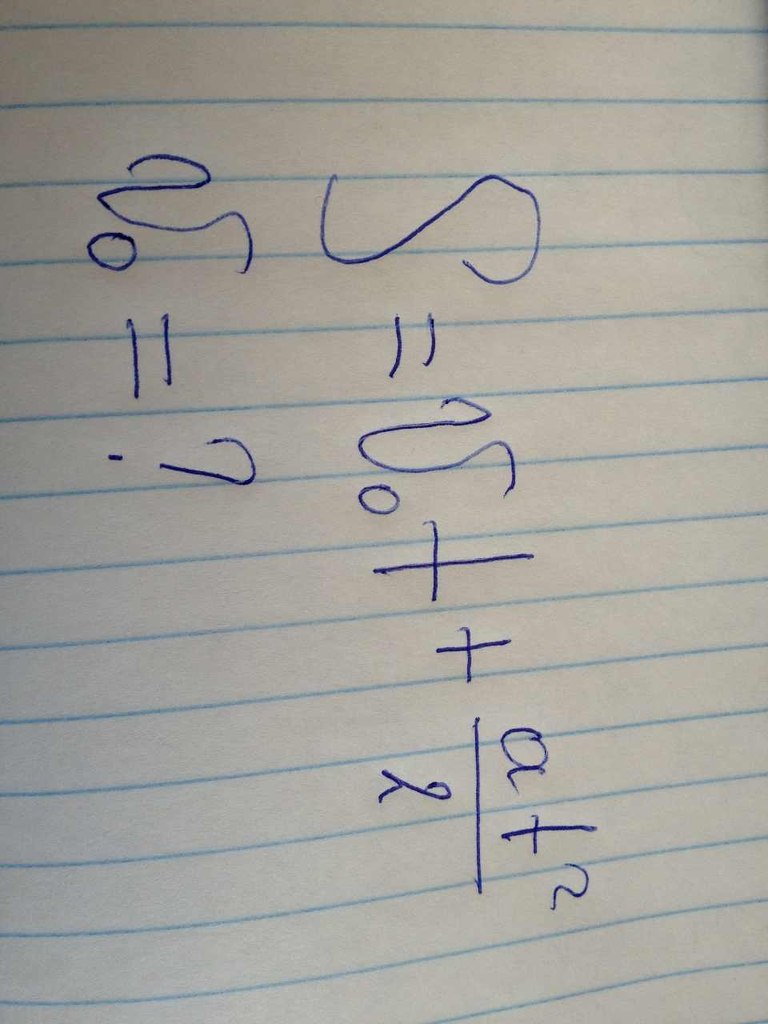 S = v₀t + at²/2
v₀ = ?